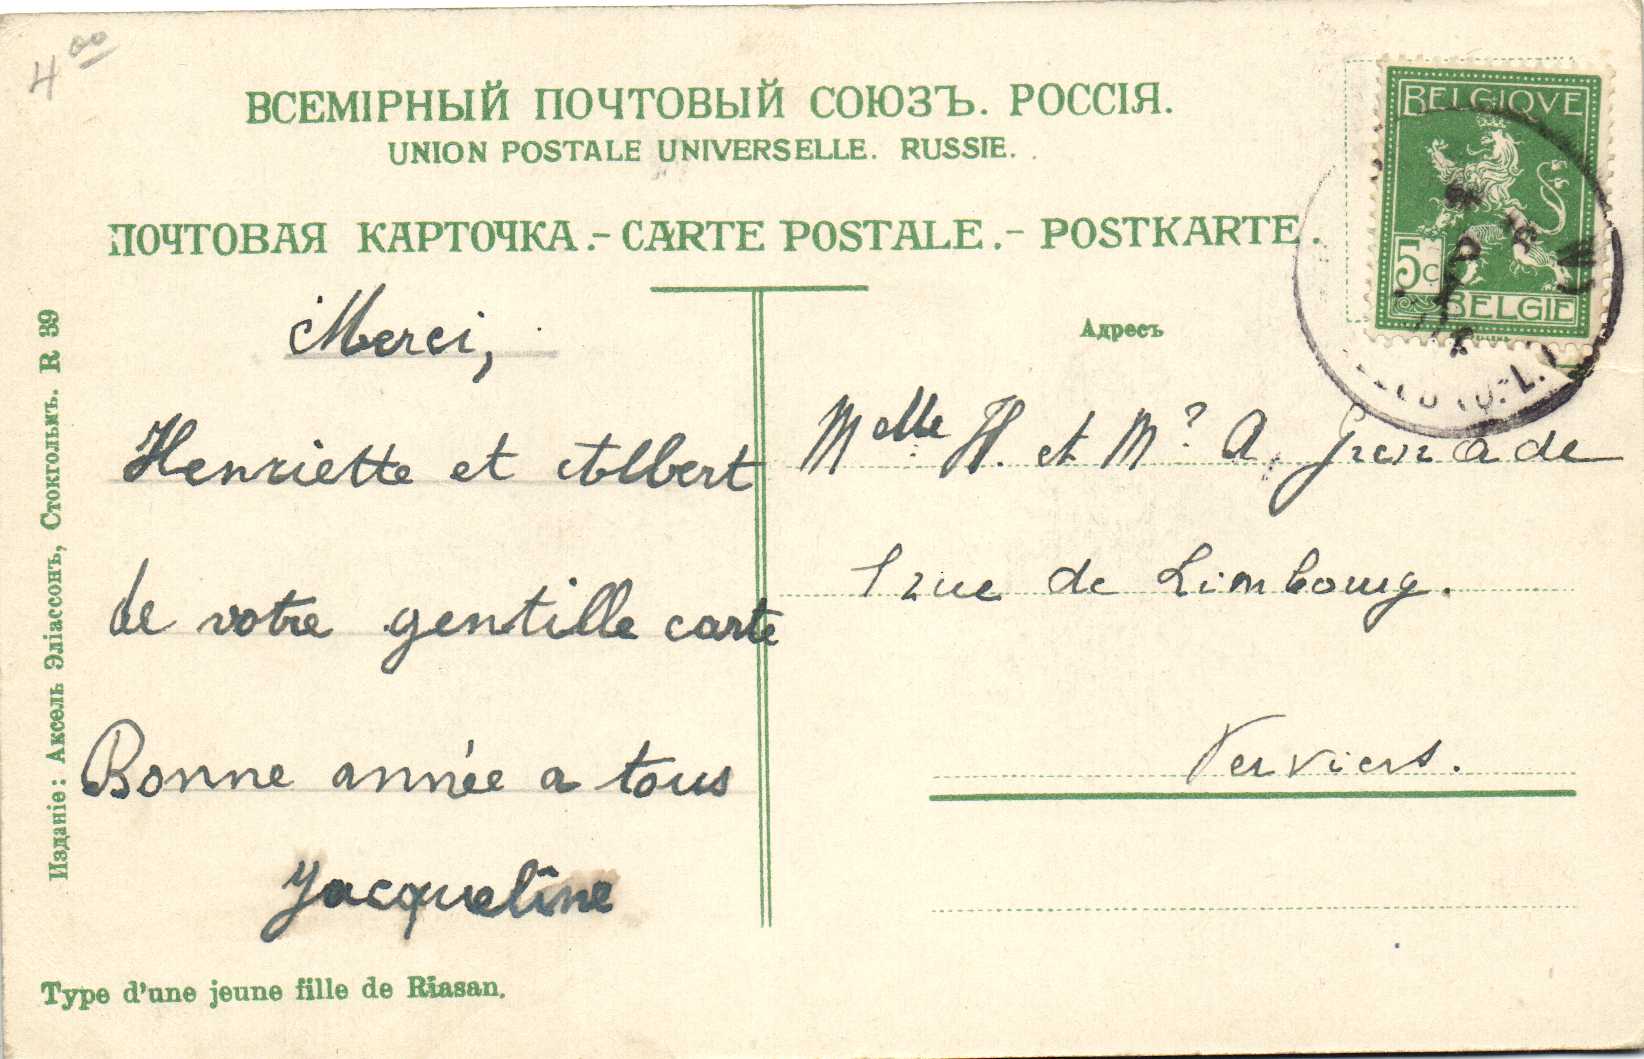 4 00
ВСЕМІРНЫЙ ПОЧТОВЫЙ СОЮЗЪ. РОССІЯ.
UNION POSTALE UNIVERSELLE. RUSSIE.
ПОЧТОВАЯ КАРТОЧКА.- CARTE POSTALE.- POSTKARTE.
BELGIQVE
5c
BELGIË
Адресъ
Merci,
Henriette et Albert
de votre gentille carte
Bonne année a tous
Jacqueline
Melle H. et Mr A. Grenade
1 rue de Limbourg.
Verviers.
Изданіе: Аксель Эліассонъ, Стокгольмъ. R 39
Type d'une jeune fille de Riasan.